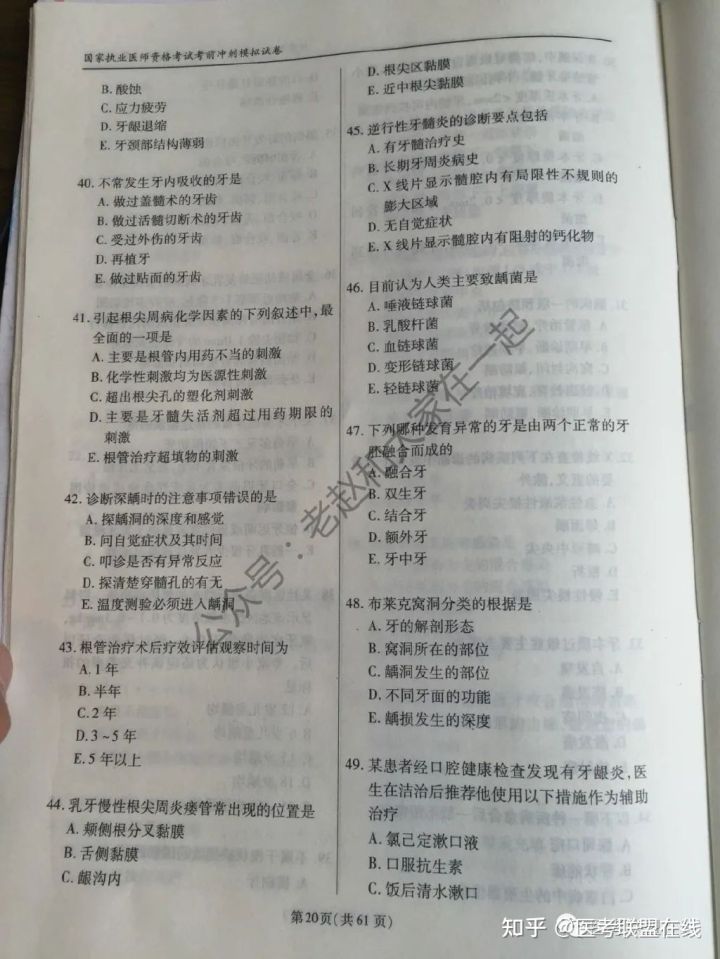 国家执业医师资格考试考前冲刺模拟试卷
B. 酸蚀
C. 应力疲劳
D. 牙龈退缩
E. 牙颈部结构薄弱
40. 不常发生牙内吸收的牙是
A. 做过盖髓术的牙齿
B. 做过活髓切断术的牙齿
C. 受过外伤的牙齿
D. 再植牙
E. 做过贴面的牙齿
41. 引起根尖周病化学因素的下列叙述中,最
全面的一项是
A. 主要是根管内用药不当的刺激
B. 化学性刺激均为医源性刺激
C. 超出根尖孔的塑化剂刺激
D. 主要是牙髓失活剂超过用药期限的
刺激
E. 根管治疗超填物的刺激
42. 诊断深龋时的注意事项错误的是
A. 探龋洞的深度和感觉
B. 问自觉症状及其时间
C. 叩诊是否有异常反应
D. 探清楚穿髓孔的有无
E. 温度测验必须进入龋洞
43. 根管治疗术后疗效评估观察时间为
A. 1 年
B. 半年
C. 2 年
D. 3~5 年
E. 5 年以上
44. 乳牙慢性根尖周炎瘘管常出现的位置是
A. 颊侧根分叉黏膜
B. 舌侧黏膜
C. 龈沟内
D. 根尖区黏膜
E. 近中根尖黏膜
45. 逆行性牙髓炎的诊断要点包括
A. 有牙髓治疗史
B. 长期牙周炎病史
C. X 线片显示髓腔内有局限性不规则的
膨大区域
D. 无自觉症状
E. X 线片显示髓腔内有阻射的钙化物
46. 目前认为人类主要致龋菌是
A. 唾液链球菌
B. 乳酸杆菌
C. 血链球菌
D. 变形链球菌
E. 轻链球菌
47. 下列哪种发育异常的牙是由两个正常的牙
胚融合而成的
A. 融合牙
B. 双生牙
C. 结合牙
D. 额外牙
E. 牙中牙
48. 布莱克窝洞分类的根据是
A. 牙的解剖形态
B. 窝洞所在的部位
C. 龋洞发生的部位
D. 不同牙面的功能
E. 龋损发生的深度
49. 某患者经口腔健康检查发现有牙龈炎,医
生在洁治后推荐他使用以下措施作为辅助
治疗
A. 氯己定漱口液
B. 口服抗生素
C. 饭后清水漱口
第20页(共 61 页)
公众号:老赵和大家在一起
知乎 @医考联盟在线